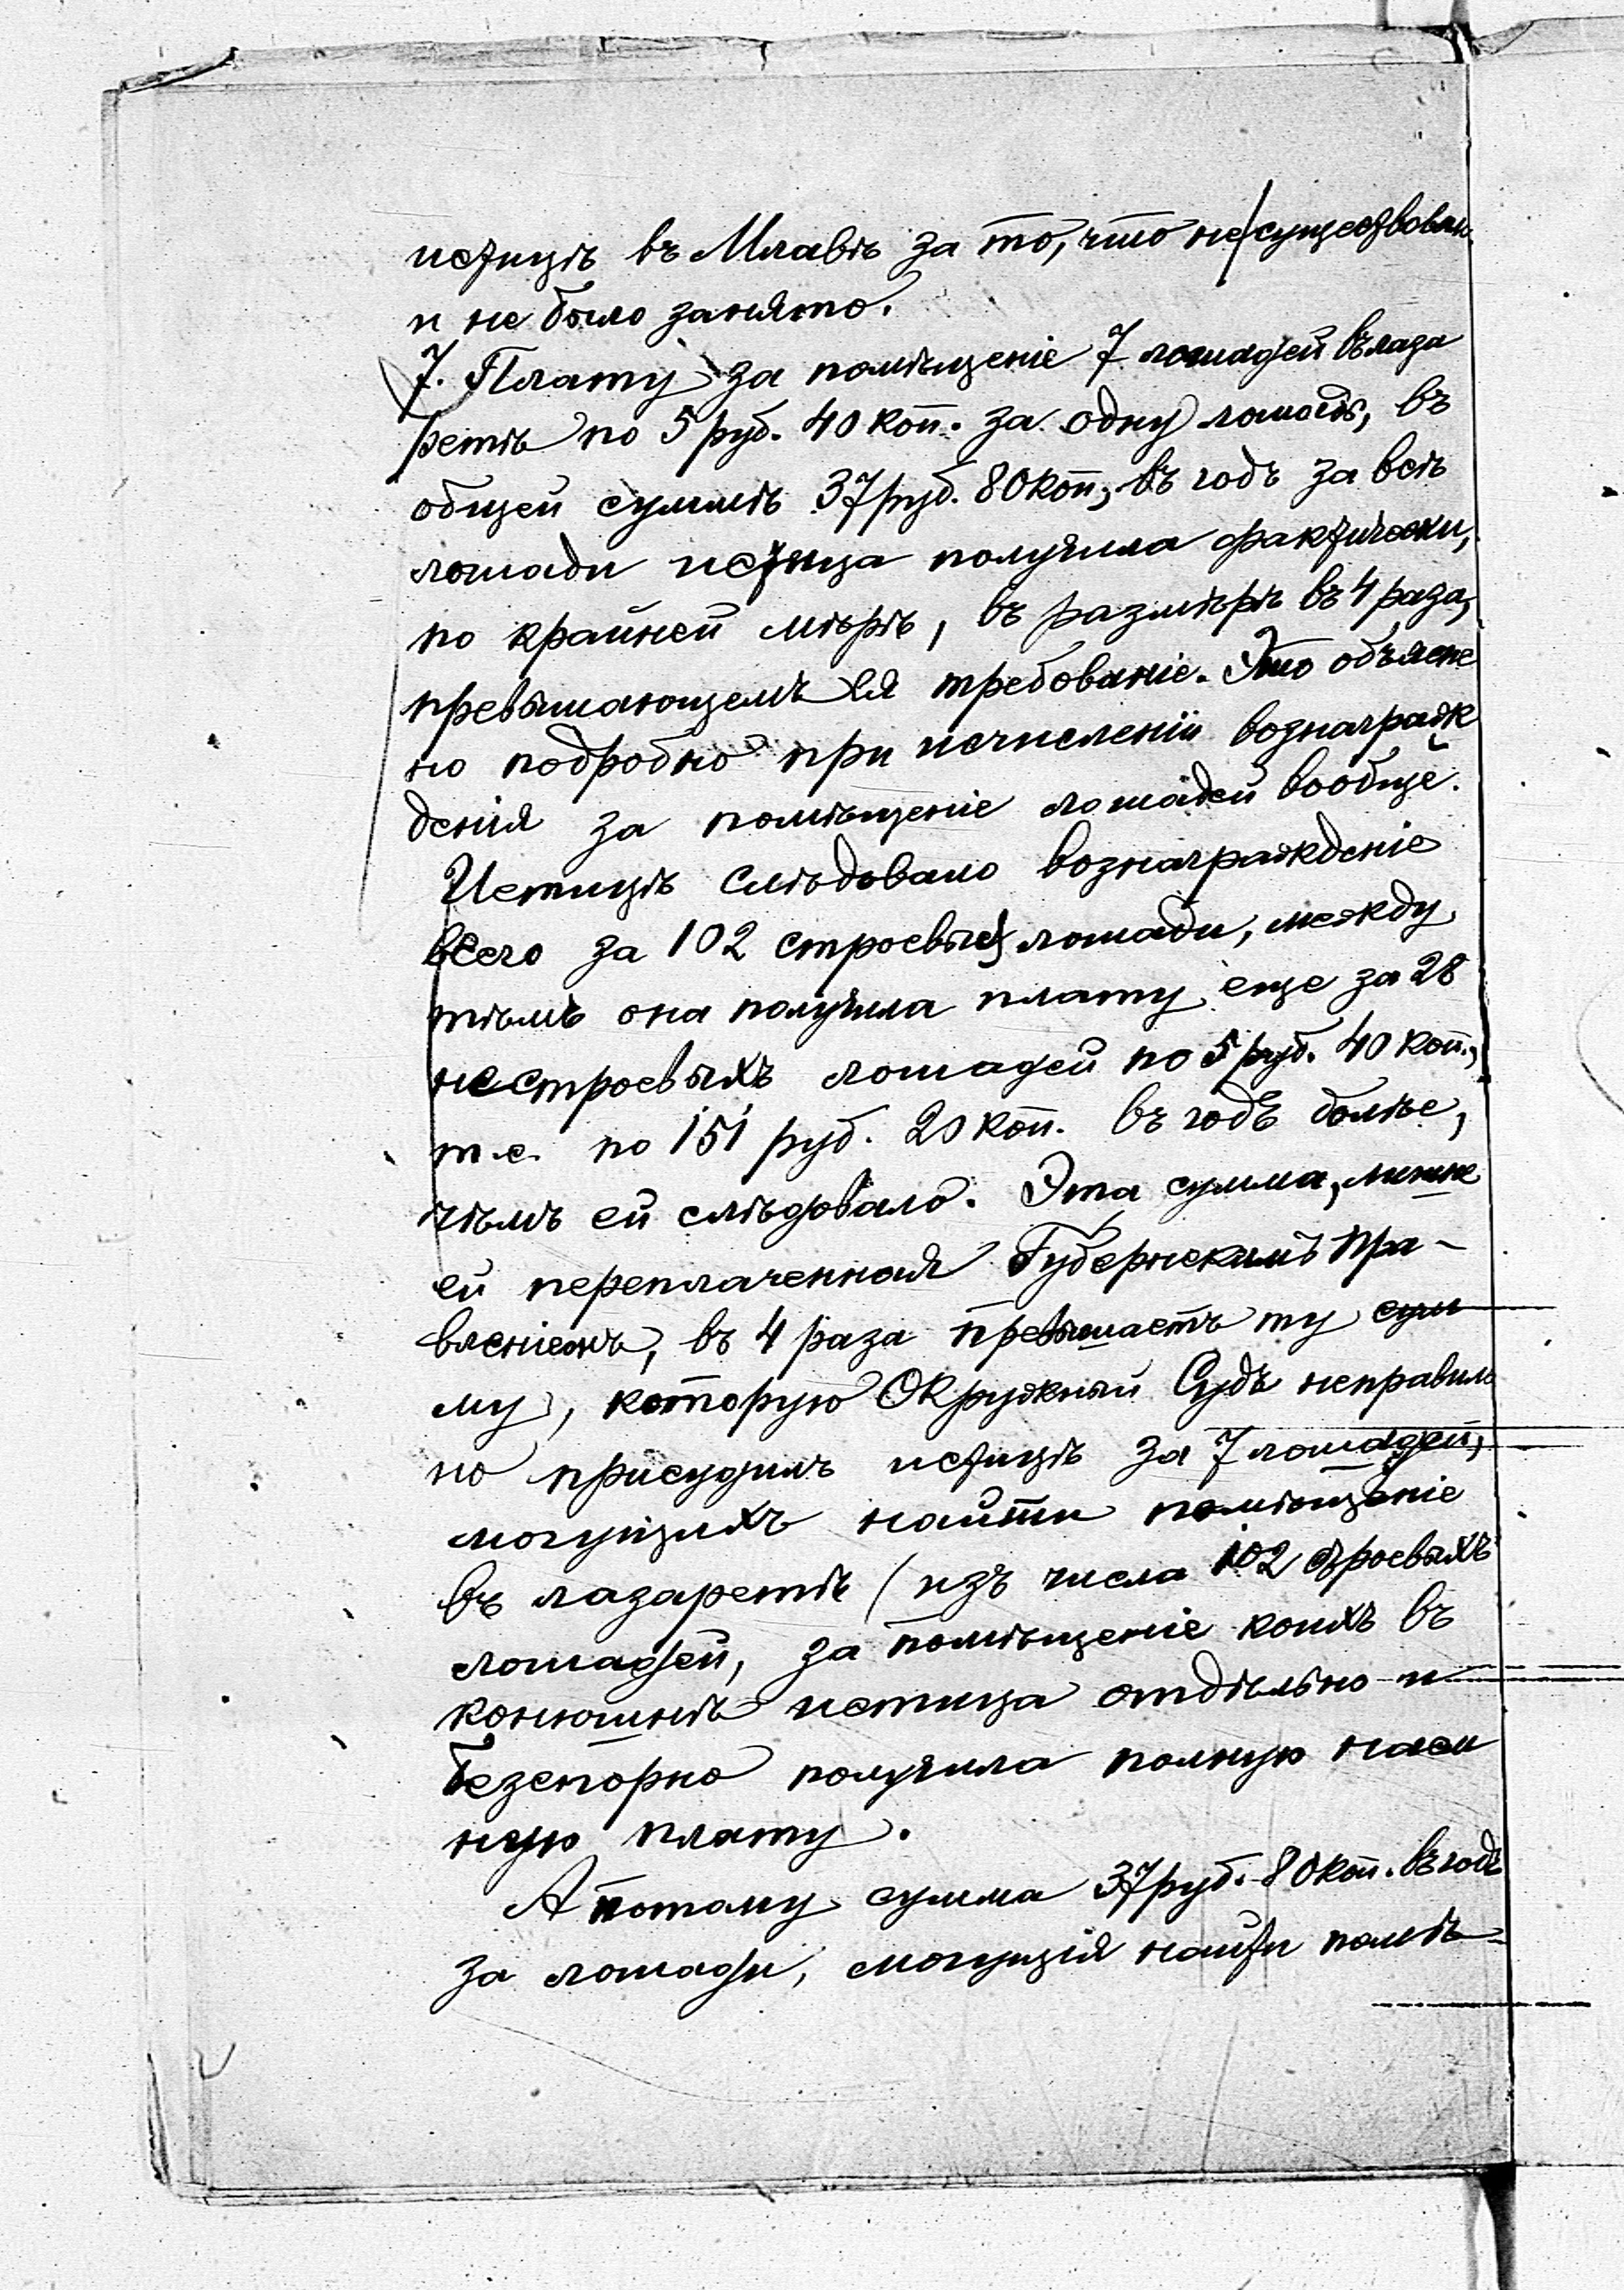 истицѣ въ Млавѣ за то, что не существовало
и не было занято.
7. Плату за помѣщеніе 7 лошадей въ лаза
ретѣ по 5 руб. 40 коп. за одну лошадь, въ
общей суммѣ 37 руб. 80 коп., въ годъ за всѣ
лошади истица получила фактически,
по крайней мѣрѣ, въ размѣрѣ въ 4 раза,
превышающемъ ея требованіе. Это объясне
но подробно при исчисленіи вознаграж
денія за помѣщеніе лошадей вообще.
Истицѣ слѣдовало вознагражденіе
всего за 102 строевыя лошади, между
тѣмъ она получила плату еще за 28
нестроевыхъ лошадей по 5 руб. 40 коп.,
т.е. по 151 руб. 20 коп. въ годъ болѣе,
чѣмъ ей слѣдовало. Эта сумма, лишне
ей переплаченная Губернскимъ Пра-
вленіемъ, въ 4 раза превышаетъ ту сум
му, которую Окружный Судъ неправиль
но присудилъ истицѣ за 7 лошадей,
могущихъ найти помѣщеніе
въ лазаретѣ (изъ числа 102 строевыхъ
лошадей, за помѣщеніе коихъ въ
конюшнѣ истица отдѣльно и
безспорно получила полную наем
ную плату.
А потому сумма 37 руб. 80 коп. въ годъ
за лошади, могущія найти помѣ-